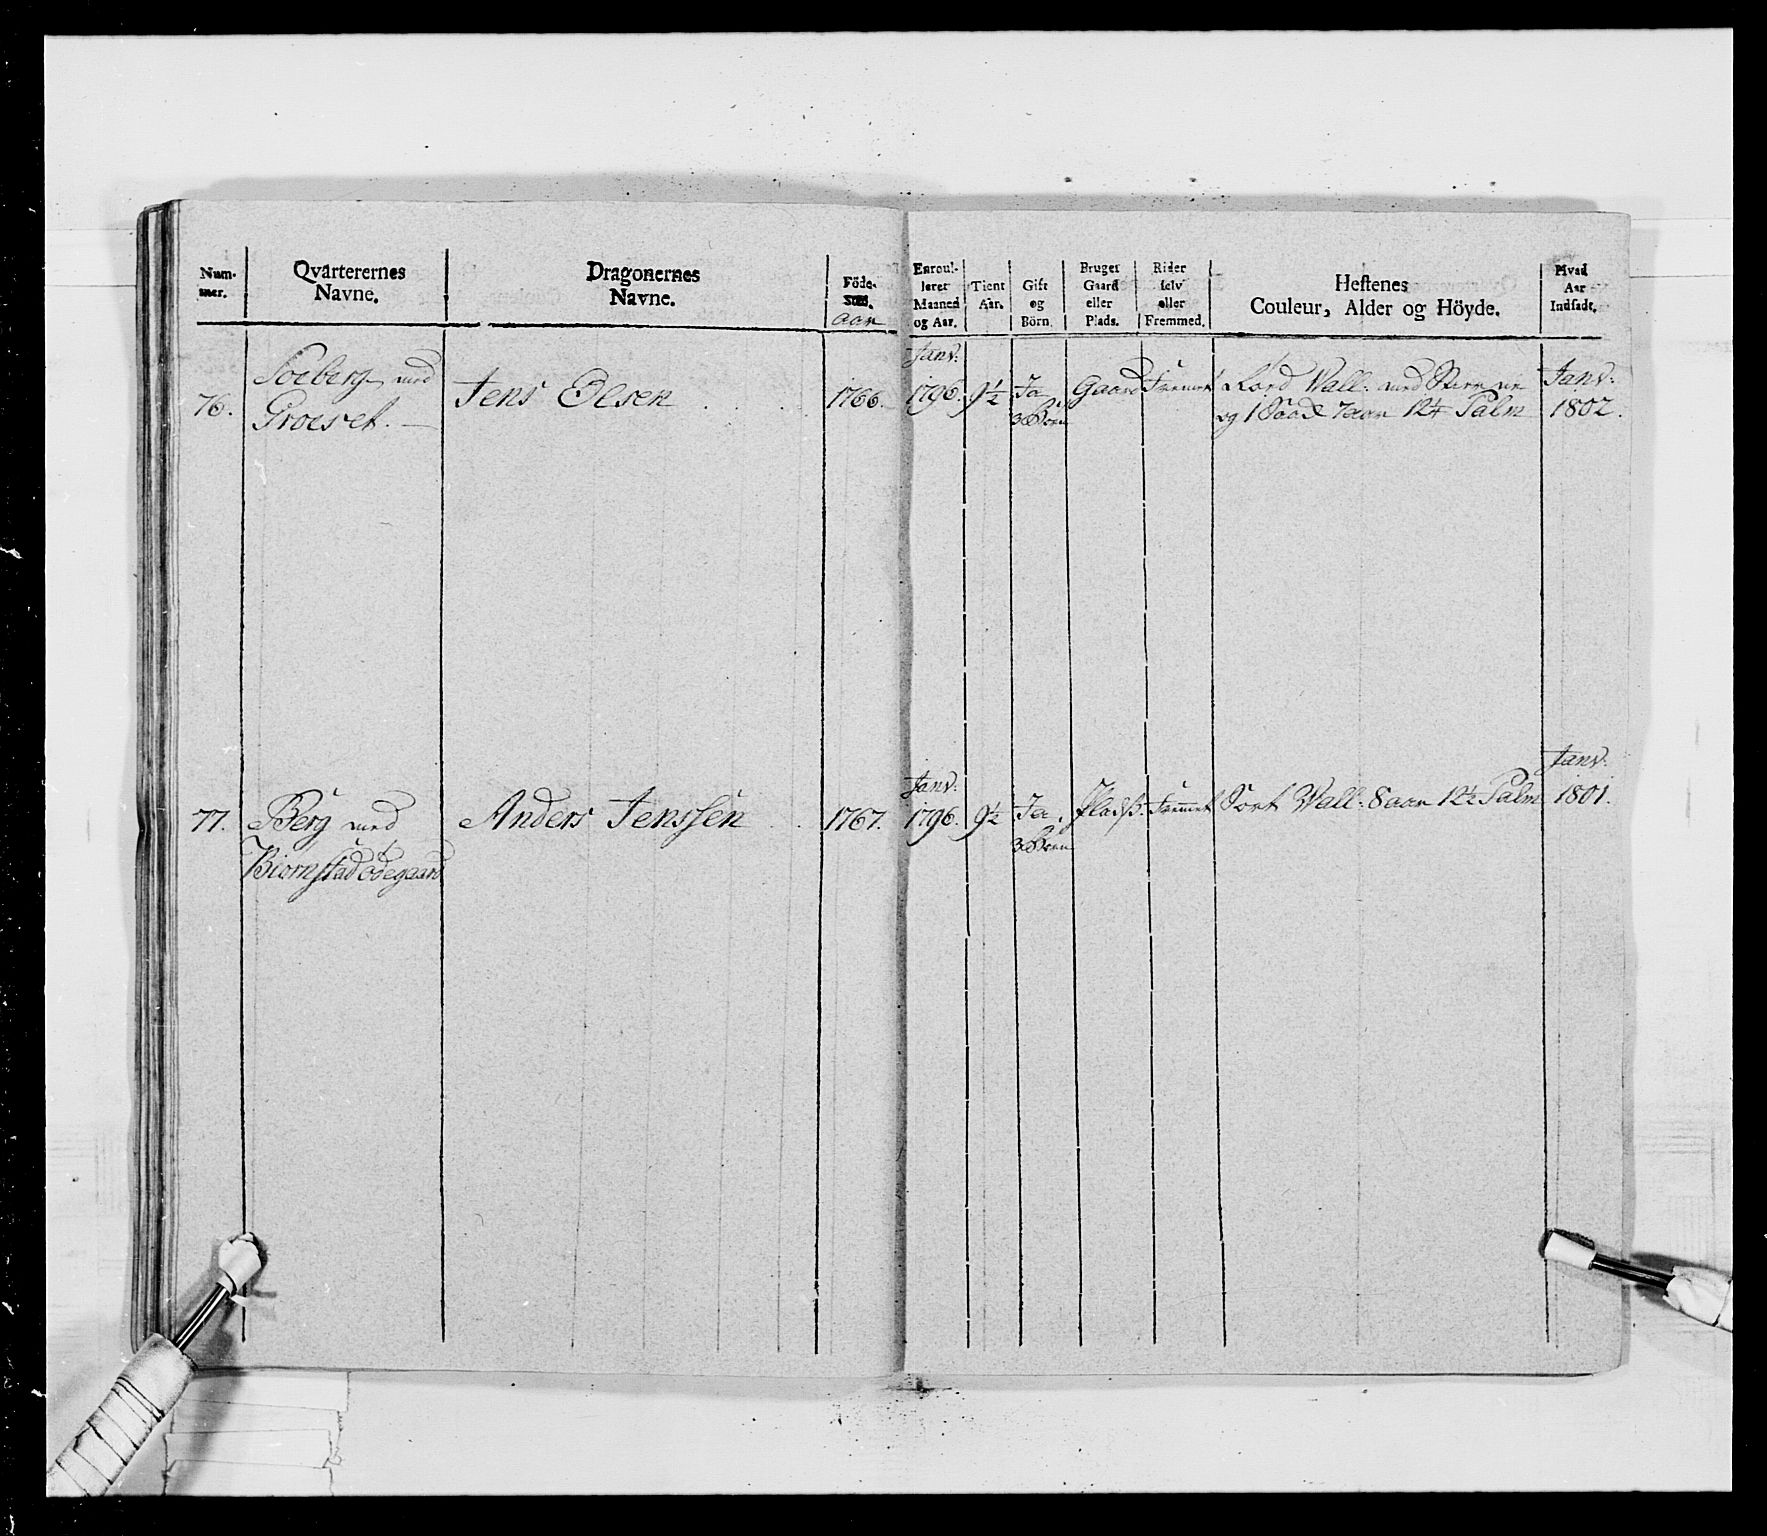 Num-
mer.
Qvarterernes
Navne.
Dragonernes
Navne.
Föde-
Sted.
Aar
Enroul-
leret
Maaned
og Aar.
Tient
Aar.
Gift
og
Börn.
Bruger
Gaard
eller
Plads.
Rider
selv
eller
Fremmed.
Hestenes
Couleur, Alder og Höyde.
Hvad
Aar
Indsadt.
76.
Soeberg med
Groeset.
Jens Olsen
1766.
Janv:
1796.
9½
Ja
3 Börn
Gaard
Fremet
Vall: med Stierne
og 1 7 aar 12¼ Palm
Janv:
1802.
77.
Berg med
Biørnstad ødegaard
Anders Jenssen
1767.
Janv:
1796.
9½
Ja.
3 Börn
Pladß.
Fremmet
Sort Vall: 8 aar 12½ Palm
Janv:
1801.